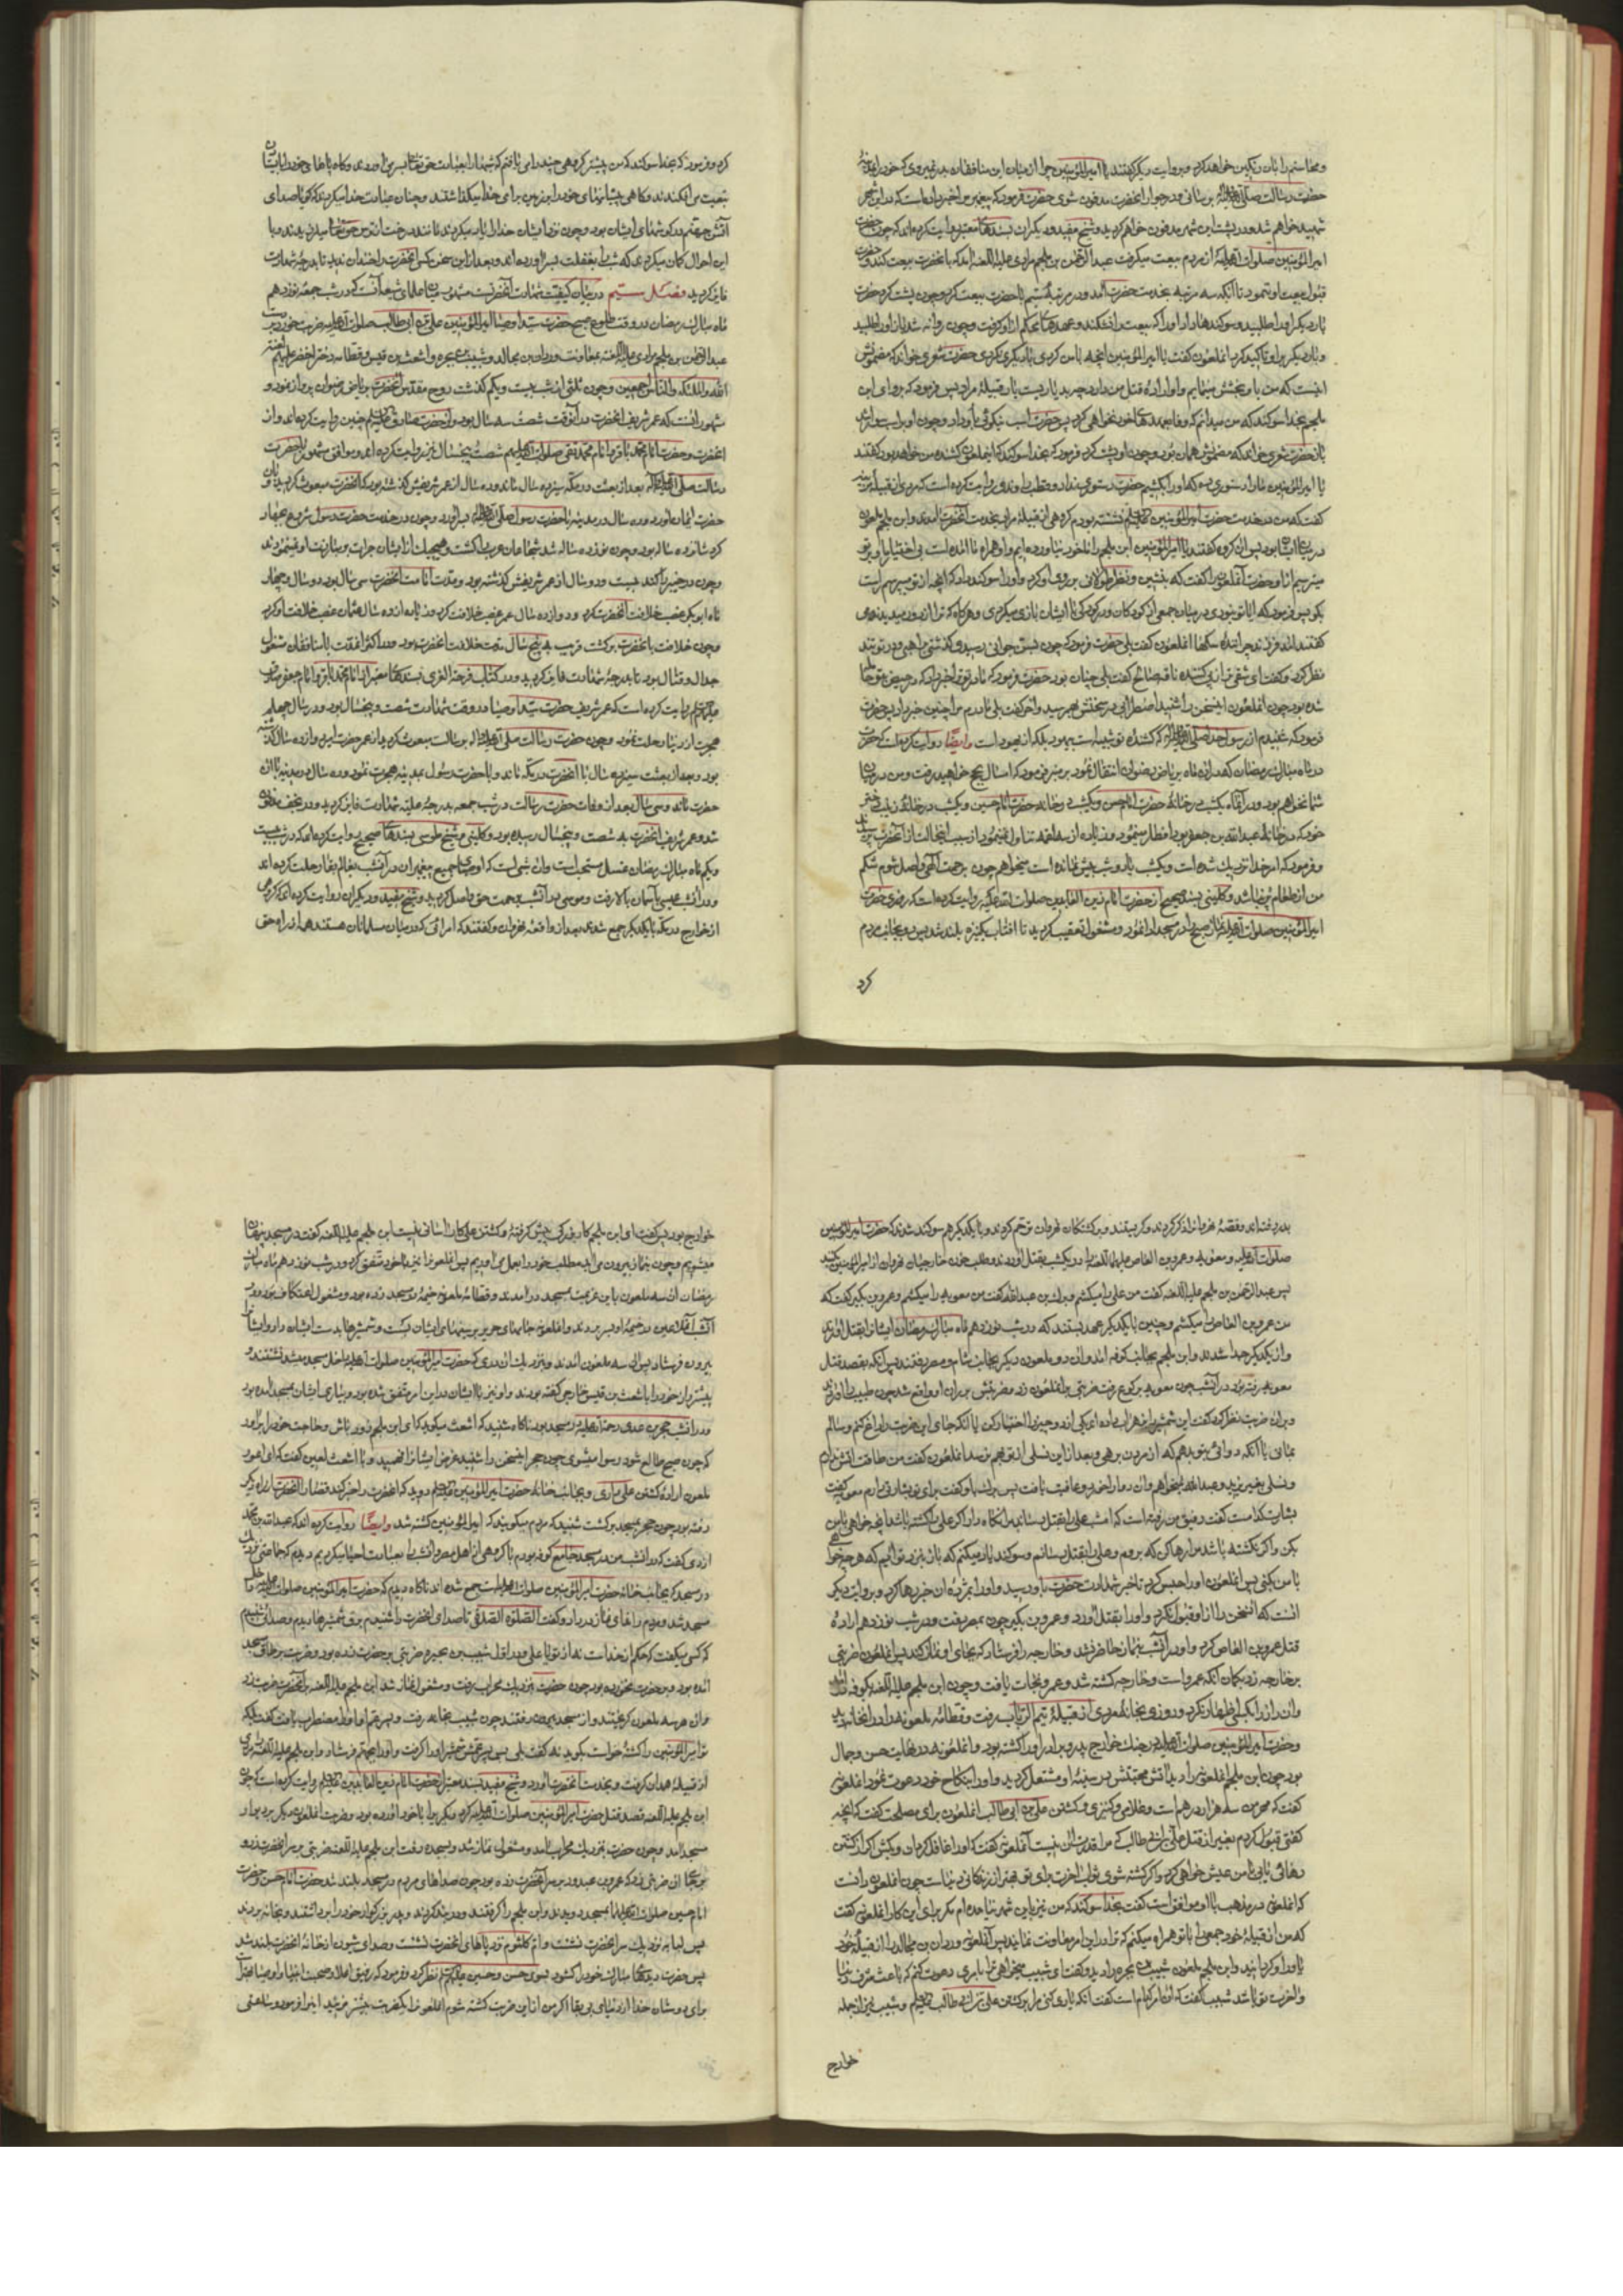 و محاسنم را بآن رنگین خواهد کرد و بروایت دیگر گفتند یا امیرالمؤمنین چرا از میان این منافقان بدر نمیروی که خود را بمدینهٔ
حضرت رسالت صلی الله علیه وآله برسانی و در جوار آنحضرت مدفون شوی حضرت فرمود که پیغمبر مرا خبر داده است که در این شهر
شهید خواهم شد و در پشت این شهر مدفون خواهم گردید و شیخ مفید و دیگران بسندهای معتبر روایت کرده اند که چون حضرت
امیرالمؤمنین صلوات الله علیه از مردم بیعت میگرفت عبدالرحمن بن ملجم مرادی علیه اللعنه آمد که با آنحضرت بیعت کند و حضرت
قبول بیعت او ننمود تا آنکه سه مرتبه بخدمت حضرت آمد و در مرتبهٔ سیم با حضرت بیعت کرد و چون پشت کرد حضرت
بار دیگر او را طلبید و سوگندها داد او را که بیعت را نشکند و عهدهای محکم از او گرفت و چون روانه شد باز او را طلبید
و بار دیگر بر او تاکید کرد آنملعون گفت یا امیرالمؤمنین آنچه با من کردی با دیگری نکردی حضرت شعری خواند که مضمونش
اینست که من باو بخشش مینمایم و او ارادهٔ قتل من دارد
ملجم بخدا سوگند که من میدانم که وفا بعهدهای خود نخواهی کرد پس حضرت اسب نیکوئی باو داد و چون او بر اسب سوار شد
باز حضرت شعری خواند که مضمونش همان بود و چون او پشت کرد فرمود که بخدا سوگند که اینملعون کشنده من خواهد بود گفتند
یا امیرالمؤمنین ما را دستوری ده که او را بکشیم حضرت دستوری نداد و قطب راوندی روایت کرده است که مردی از قبیلهٔ مزینه
گفت که من در خدمت حضرت امیرالمؤمنین علیه السلم نشسته بودم گروهی از قبیلهٔ مراد بخدمت آنحضرت آمدند و ابن ملجم ملعون
در میان ایشان بود پس آن گروه گفتند یا امیرالمؤمنین ابن ملجم را ما خود نیاورده ایم و او همراه ما آمده است بی اختیار ما و بر تو
میترسیم از او حضرت آنملعون را گفت که بنشین و نظر طولانی بر روی او کرد و او را سوگند داد که آنچه از تو بپرسم راست
بگو پس فرمود که ایا تو نبودی در میان جمعی از کودکان و در کودکی با ایشان بازی میکردی و هرگاه که ترا از دور میدیدند می
گفتند آمد فرزند چرانندهٔ سگها آنملعون گفت بلی حضرت فرمود که چون بسن جوانی رسیدی گذشتی براهبی و در تو تند
نظر کرد و گفت ای شقی تر از پی کنندهٔ ناقهٔ صالح گفت بلی چنان بود حضرت فرمود که مادر تو ترا خبر داد که در حیض بتو حامله
شده بود چون آنملعون اینسخن را شنید اضطرابی در سخنش بهم رسید و آخر گفت بلی مادرم مرا چنین خبر داد پس حضرت
فرمود که شنیدم از رسول خدا صلی الله علیه وآله که کشندهٔ تو شبیه است بیهود بلکه از یهود است وایضا روایت کرده است که حضرت
در ماه مبارک رمضان که در آن ماه بریاض رضوان انتقال نمود بر منبر فرمود که امسال بحج خواهید رفت و من در میان
شما نخواهم بود و در آنماه یکشب در خانهٔ حضرت امام حسن و یکشب در خانهٔ حضرت امام حسین و یکشب در خانهٔ زینب دختر
خود که در خانهٔ عبدالله بن جعفر بود افطار مینمود و زیاده از سه لقمه تناول نمینمود از سبب اینحالت از آنحضرت پرسیدند
و فرمود که امر خدا نزدیک شده است و یکشب یا دو شب بیش نمانده است میخواهم چون برحمت الهی واصل شوم شکم
من از طعام پر نباشد و کلینی بسند صحیح از حضرت امام زین العابدین صلوات الله علیه روایت کرده است که روزی حضرت
امیرالمؤمنین صلوات الله علیه نماز صبح را در مسجد ادا نمود و مشغول تعقیب گردید تا آفتاب یکنیزه بلند شد پس رو بجانب مردم
کرد
کرد و فرمود که بخدا سوگند که من پیشتر گروهی چند را می یافتم که شبها را بعبادت حق تعالی بسر می آوردند و گاه پاهای خود را بایستادن
بتعب می افکندند و گاهی پیشانیهای خود را بر زمین برای خدا میگذاشتند و چنان عبادت خدا میکردند که گویا صدای
آتش جهنم در گوشهای ایشان بود و چون نزد ایشان خدا را یاد میکردند مانند درخت از ترس حق تعالی میلرزیدند و با
این احوال گمان میکردند که شب را بغفلت بسر آورده اند و بعد از این سخن کسی آنحضرت را خندان ندید تا بدرجهٔ شهادت
فایز گردید فصل سیم در بیان کیفیت شهادت آنحضرتست مشهور میان علمای شیعه آنست که در شب جمعه نوزدهم
ماه مبارک رمضان در وقت طلوع صبح حضرت سید اوصیا امیرالمؤمنین علی بن ابی طالب صلوات الله علیه ضربت خورد بر دست
عبدالرحمن بن ملجم مرادی علیه اللعنه بمعاونت وردان بن مجالد و شبیب بن بجیره و اشعث بن قیس و قطامه دختر اخضر علیهم لعنة
الله والملئکة والناس اجمعین و چون ثلثی از شب بیست و یکم گذشت روح مقدس آنحضرت بریاض رضوان پرواز نمود و
مشهور آنست که عمر شریف آنحضرت در آنوقت شصت و سه سال بود و از حضرت صادق علیه السلم چنین روایت کرده اند و از
آنحضرت و حضرت امام محمد باقر و امام محمد تقی صلوات الله علیهم شصت و پنجسال نیز روایت کرده اند و موافق مشهور با حضرت
رسالت صلی الله علیه وآله بعد از بعثت در مکه سیزده سال ماند و ده سال از عمر شریفش گذشته بود که آنحضرت مبعوث گردید و بآن
حضرت ایمان آورد و ده سال در مدینه با حضرت رسول صلی الله علیه وآله بسر آورد و چون در خدمت حضرت رسول شروع بجهاد
کرد شانزده ساله بود و چون نوزده ساله شد شجاعان عرب را کشت و هیچیک از ایشان جرات بر مبارزت او نمینمودند
و چون در خیبر را کند بیست و دو سال از عمر شریفش گذشته بود و مدت امامت آنحضرت سی سال بود دو سال و چهار
ماه ابو بکر غصب خلافت آنحضرت کرد و ده سال عمر غصب خلافت کرد و زیاده از ده سال عثمان غصب خلافت او کرد
و چون خلافت بآنحضرت برگشت قریب به پنج سال مدت خلافت آنحضرت بود و در اکثر آنمدت با منافقان مشغول
جدال و قتال بود تا بدرجهٔ شهادت فایز گردید و در کتاب فرحة الغری بسندهای معتبر از امام محمد باقر و امام جعفر صادق
علیهم السلم روایت کرده است که عمر شریف حضرت سید اوصیا در وقت شهادت شصت و پنجسال بود و در سال چهلم
هجرت از دنیا رحلت نمود و چون حضرت رسالت صلی الله علیه وآله برسالت مبعوث گردید از عمر حضرت امیر دوازده سال گذشته
بود و بعد از بعثت سیزده سال با آنحضرت در مکه ماند و با حضرت رسول بمدینه هجرت نمود و ده سال در مدینه با آن
حضرت ماند و سی سال بعد از وفات حضرت رسالت در شب جمعه بدرجهٔ علیهٔ شهادت فایز گردید و در نجف مدفون
شد و عمر شریف آنحضرت به شصت و پنجسال رسیده بود و کلینی و شیخ طوسی بسندهای صحیح روایت کرده اند که در شب بیست
و یکم ماه مبارک رمضان غسل مستحب است و آن شبی است که اوصیای جمیع پیغمبران در آنشب بعالم بقا رحلت کرده اند
و در آنشب عیسی بآسمان بالا رفت و موسی در آنشب برحمت حق واصل گردید و شیخ مفید و دیگران روایت کرده اند که گروهی
از خوارج در مکه با یکدیگر جمع شدند بعد از واقعهٔ نهروان و گفتند که امرائی که در میان مسلمانان هستند همه از راه حق
بدر رفته اند و قصهٔ نهروانرا ذکر کردند و گریستند و بر کشتگان نهروان ترحم کردند و با یکدیگر هم سوگند شدند که حضرت امیرالمؤمنین
صلوات الله علیه و معویه و عمرو بن العاص علیهما اللعنة را در یکشب بقتل آورند و طلب خون خارجیان نهروان از امیرالمؤمنین بکنند
پس عبدالرحمن بن ملجم علیه اللعنه گفت من علی را میکشم و برک بن عبدالله گفت من معویه را میکشم و عمرو بن بکیر گفت که
من عمرو بن العاص را میکشم و چنین با یکدیگر عهد بستند که در شب نوزدهم ماه مبارک رمضان ایشانرا بقتل آورند
و از یکدیگر جدا شدند و ابن ملجم بجانب کوفه آمد و آن دو ملعون دیگر بجانب شام و مصر رفتند پس آنکه بقصد قتل
معویه رفته بود در آنشب چون معویه برکوع رفت ضربتی بر آنملعون زد و ضربتش بر ران او واقع شد چون طبیب را آوردند
و بر آن ضربت نظر کرد گفت این شمشیر را بزهر آب داده اند یکی از دو چیز را اختیار کن یا آنکه جای این ضربت را داغ کنم و سالم
بمانی یا آنکه دوائی بتو بدهم که از مردن برهی و بعد از این نسلی از تو بهم نرسد آنملعون گفت من طاقت آتش ندارم
و نسلی بغیر یزید و عبدالله نمیخواهم و آن دوا را خورد و عافیت یافت پس برک باو گفت برای تو بشارتی دارم معویه گفت
بشارت کدامست گفت رفیق من رفته است که امشب علی را بقتل رساند مرا نگاه دار اگر علی را کشته باشد آنچه خواهی با من
بکن و اگر نکشته باشد مرا رها کن که بروم و علی را بقتل رسانم و سوگند یاد میکنم که باز بنزد تو آیم که هر چه خواهی
با من بکنی پس آنملعون او را حبس کرد تا خبر شهادت حضرت باو رسید و او را بمژدهٔ آن خبر رها کرد و بروایت دیگر
آنست که آنسخن را از او قبول نکرد و او را بقتل آورد و عمرو بن بکیر چون بمصر رفت و در شب نوزدهم ارادهٔ
قتل عمرو بن العاص کرد و او در آنشب بنماز حاضر نشد و خارجه را فرستاد که بجای او نماز کند پس آنملعون ضربتی
بر خارجه زد بگمان آنکه عمرو است و خارجه کشته شد و عمرو نجات یافت و چون ابن ملجم علیه اللعنه بکوفه آمد
و آن راز را بکسی اظهار نکرد و روزی بخانهٔ مردی از قبیلهٔ تیم الرباب رفت و قطامهٔ ملعونه را در آنخانه دید
و حضرت امیرالمؤمنین صلوات الله علیه در جنک خوارج پدر و برادر او را کشته بود و آنملعونه در نهایت حسن و جمال
بود چون ابن ملجم آنملعونه را دید آتش محبتش در سینهٔ او مشتعل گردید و او را بنکاح خود دعوت نمود آنملعونه
گفت که مهر من سه هزار درهم است و غلامی و کنیزی و کشتن علی بن ابی طالب آنملعون برای مصلحت گفت که آنچه
گفتی قبول کردم بغیر از قتل علی بن ابی طالب که مرا قدرت آن نیست آنملعونه گفت که او را غافل کرده او را بکش اگر از کشتن
رهائی یابی با من عیش خواهی کرد و اگر کشته شوی ثواب آخرت برای تو بهتر از زندگانی دنیاست چون آنملعون دانست
که آنملعونه در مذهب با او موافق است گفت بخدا سوگند که من نیز باین شهر نیامده ام مگر برای این کار آنملعونه گفت
که من از قبیلهٔ خود جمعی را با تو همراه میکنم که ترا در این امر معاونت نمایند پس آنملعونه وردان بن مجالد را از قبیلهٔ خود
یاور او گردانید و ابن ملجم ملعون شبیب بن بجره را دید و گفت ای شبیب میخواهی ترا بامری دعوت کنم که باعث شرف دنیا
و آخرت تو باشد شبیب گفت که آن امر کدام است گفت آنکه یاری کنی مرا بر کشتن علی بن ابی طالب علیه السلم و شبیب نیز از جمله
خوارج
خوارج بود پس گفت ای ابن ملجم کار بزرگی پیش گرفتهٔ و کشتن علی کار آسانی نیست ابن ملجم علیه اللعنه گفت در مسجد پنهان
میشویم و چون بنماز بیرون می آید مطلب خود را بعمل می آوریم پس آنملعونرا نیز با خود متفق کرد و در شب نوزدهم ماه مبارک
رمضان آن سه ملعون باین عزیمت بمسجد درآمدند و قطامهٔ ملعونه خیمهٔ در مسجد زده بود و مشغول اعتکاف بود و در
آنشب آنملاعین در خیمهٔ او بسر بردند و آنملعونه جامهای حریر بر سینهای ایشان بست و شمشیرها بدست ایشان داد و ایشانرا
بیرون فرستاد پس آن سه ملعون آمدند و بنزدیک آن دری که حضرت امیرالمؤمنین صلوات الله علیه داخل مسجد میشد نشستند و
پیشتر راز خود را باشعث بن قیس خارجی گفته بودند و او نیز با ایشان در این امر متفق شده بود و بیاری ایشان بمسجد آمده بود
و در آنشب حجر بن عدی رحمة الله علیه در مسجد بود ناگاه شنید که اشعث میگوید که ای ابن ملجم زود باش و حاجت خود را برآور
که چون صبح طالع شود رسوا میشوی چون حجر اینسخن را شنید غرض ایشانرا فهمید و با اشعث لعین گفت که ای اعور
ملعون ارادهٔ کشتن علی داری و بجانب خانهٔ حضرت امیرالمؤمنین علیه السلم دوید که آنحضرت را خبر کند قضا را آنحضرت از راه دیگر
رفته بود چون حجر بمسجد برگشت شنید که مردم میگویند که امیرالمؤمنین کشته شد وایضا روایت کرده اند که عبدالله بن محمد
ازدی گفت که در آنشب من در مسجد جامع کوفه بودم با گروهی از اهل مصر و آنشب را بعبادت احیا میکردیم دیدم که جماعتی
در مسجد که بجانب خانهٔ حضرت امیرالمؤمنین صلوات الله علیه است جمع شده اند ناگاه دیدم که حضرت امیرالمؤمنین صلوات الله علیه داخل
مسجد شد و مردم را بمای نماز ندا در داد و گفت الصلوة الصلوة تا صدای آنحضرت را شنیدم برق شمشیرها دیدم و صدائی شنیدم
که کسی میگفت که حکم از خداست نه از تو یا علی و در اول شبیب بن بجیره ضربتی بر حضرت زده بود و ضربت بر طاق مسجد
آمده بود و بر حضرت نخورده بود چون حضرت بنزدیک محراب رفت و مشغول نماز شد ابن ملجم علیه اللعنه بر آنحضرت ضربت زد
و آن هر سه ملعون گریختند و از مسجد بیرون رفتند چون شبیب بخانه رفت و پسر عم او او را مضطرب یافت گفت بلکه
تو امیرالمؤمنین را کشتهٔ خواست بگوید نه گفت بلی پس پسر عمش شمشیر او را گرفت و او را بجهنم فرستاد و ابن ملجم علیه اللعنه را مردی
از قبیلهٔ همدان گرفت و بخدمت آنحضرت آورد و شیخ مفید بسند معتبر از حضرت امام زین العابدین علیه السلم روایت کرده است که چون
ابن ملجم علیه اللعنه قصد قتل حضرت امیرالمؤمنین صلوات الله علیه کرد دیگریرا با خود آورده بود و ضربت آنملعون دیگر بر دیوار
مسجد آمد و چون حضرت بنزدیک محراب آمد و مشغول نماز شد و بسجده رفت ابن ملجم علیه اللعنه ضربتی بر سر آنحضرت زد و
بر جای آن ضربتی زد که عمرو بن عبدود بر سر آنحضرت زده بود چون صداهای مردم در مسجد بلند شد حضرت امام حسن و حضرت
امام حسین صلوات الله علیهما بمسجد دویدند و ابن ملجم را گرفتند و در بند کردند و پدر بزرگوار خود را برداشتند و بخانه بردند
پس لبابه نزدیک سر آنحضرت نشست و ام کلثوم نزد پاهای آنحضرت نشست و صدای شیون از خانهٔ آنحضرت بلند شد
پس حضرت دیدهای مبارک خود را گشود بسوی حسن و حسین علیهما السلم نظر کرد و فرمود که رفیق اعلا و صحبت انبیا و اوصیا بهتر است
برای دوستان خدا از دنیای بی بقا اگر من از این ضربت کشته شوم آنملعونرا یکضربت بیشتر مزنید اینرا فرمود و ساعتی